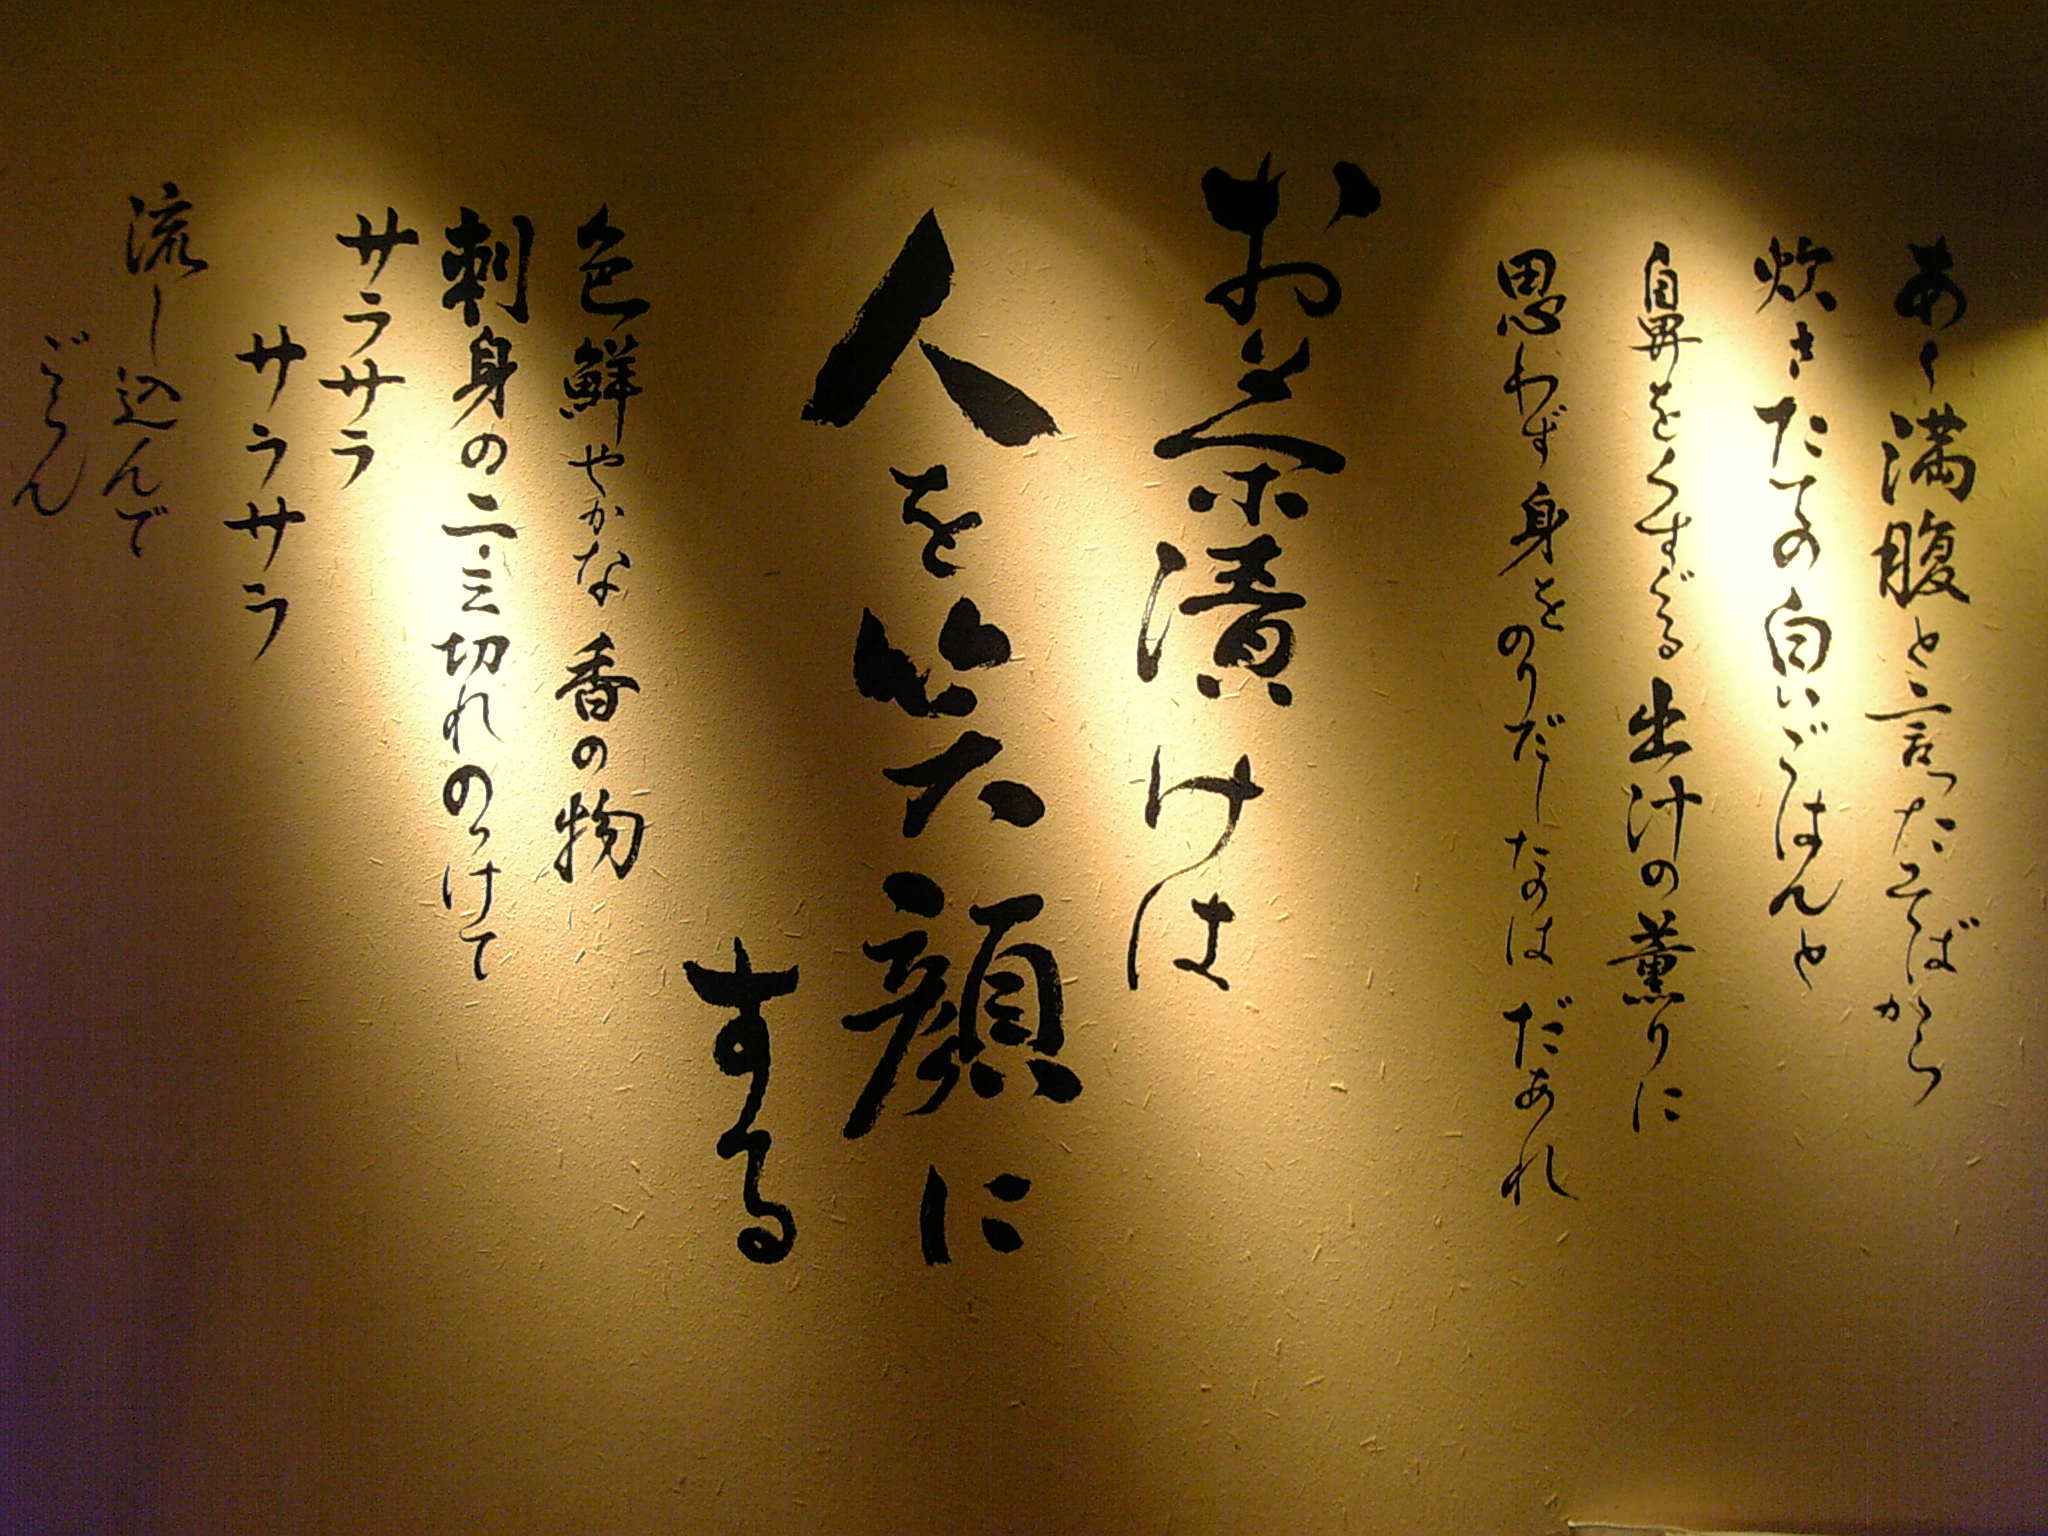 あく満腹と言ったそばから
炊きたての白いごはんと
鼻をくすぐる出汁の薫りに
思わず身をのりだしなのはだあれ
お茶漬けは
人を笑顔に
する
色鮮やかな香の物
刺身の二・三切れのっけて
サラサラ
サラサラ
流し込んで
ごっくん